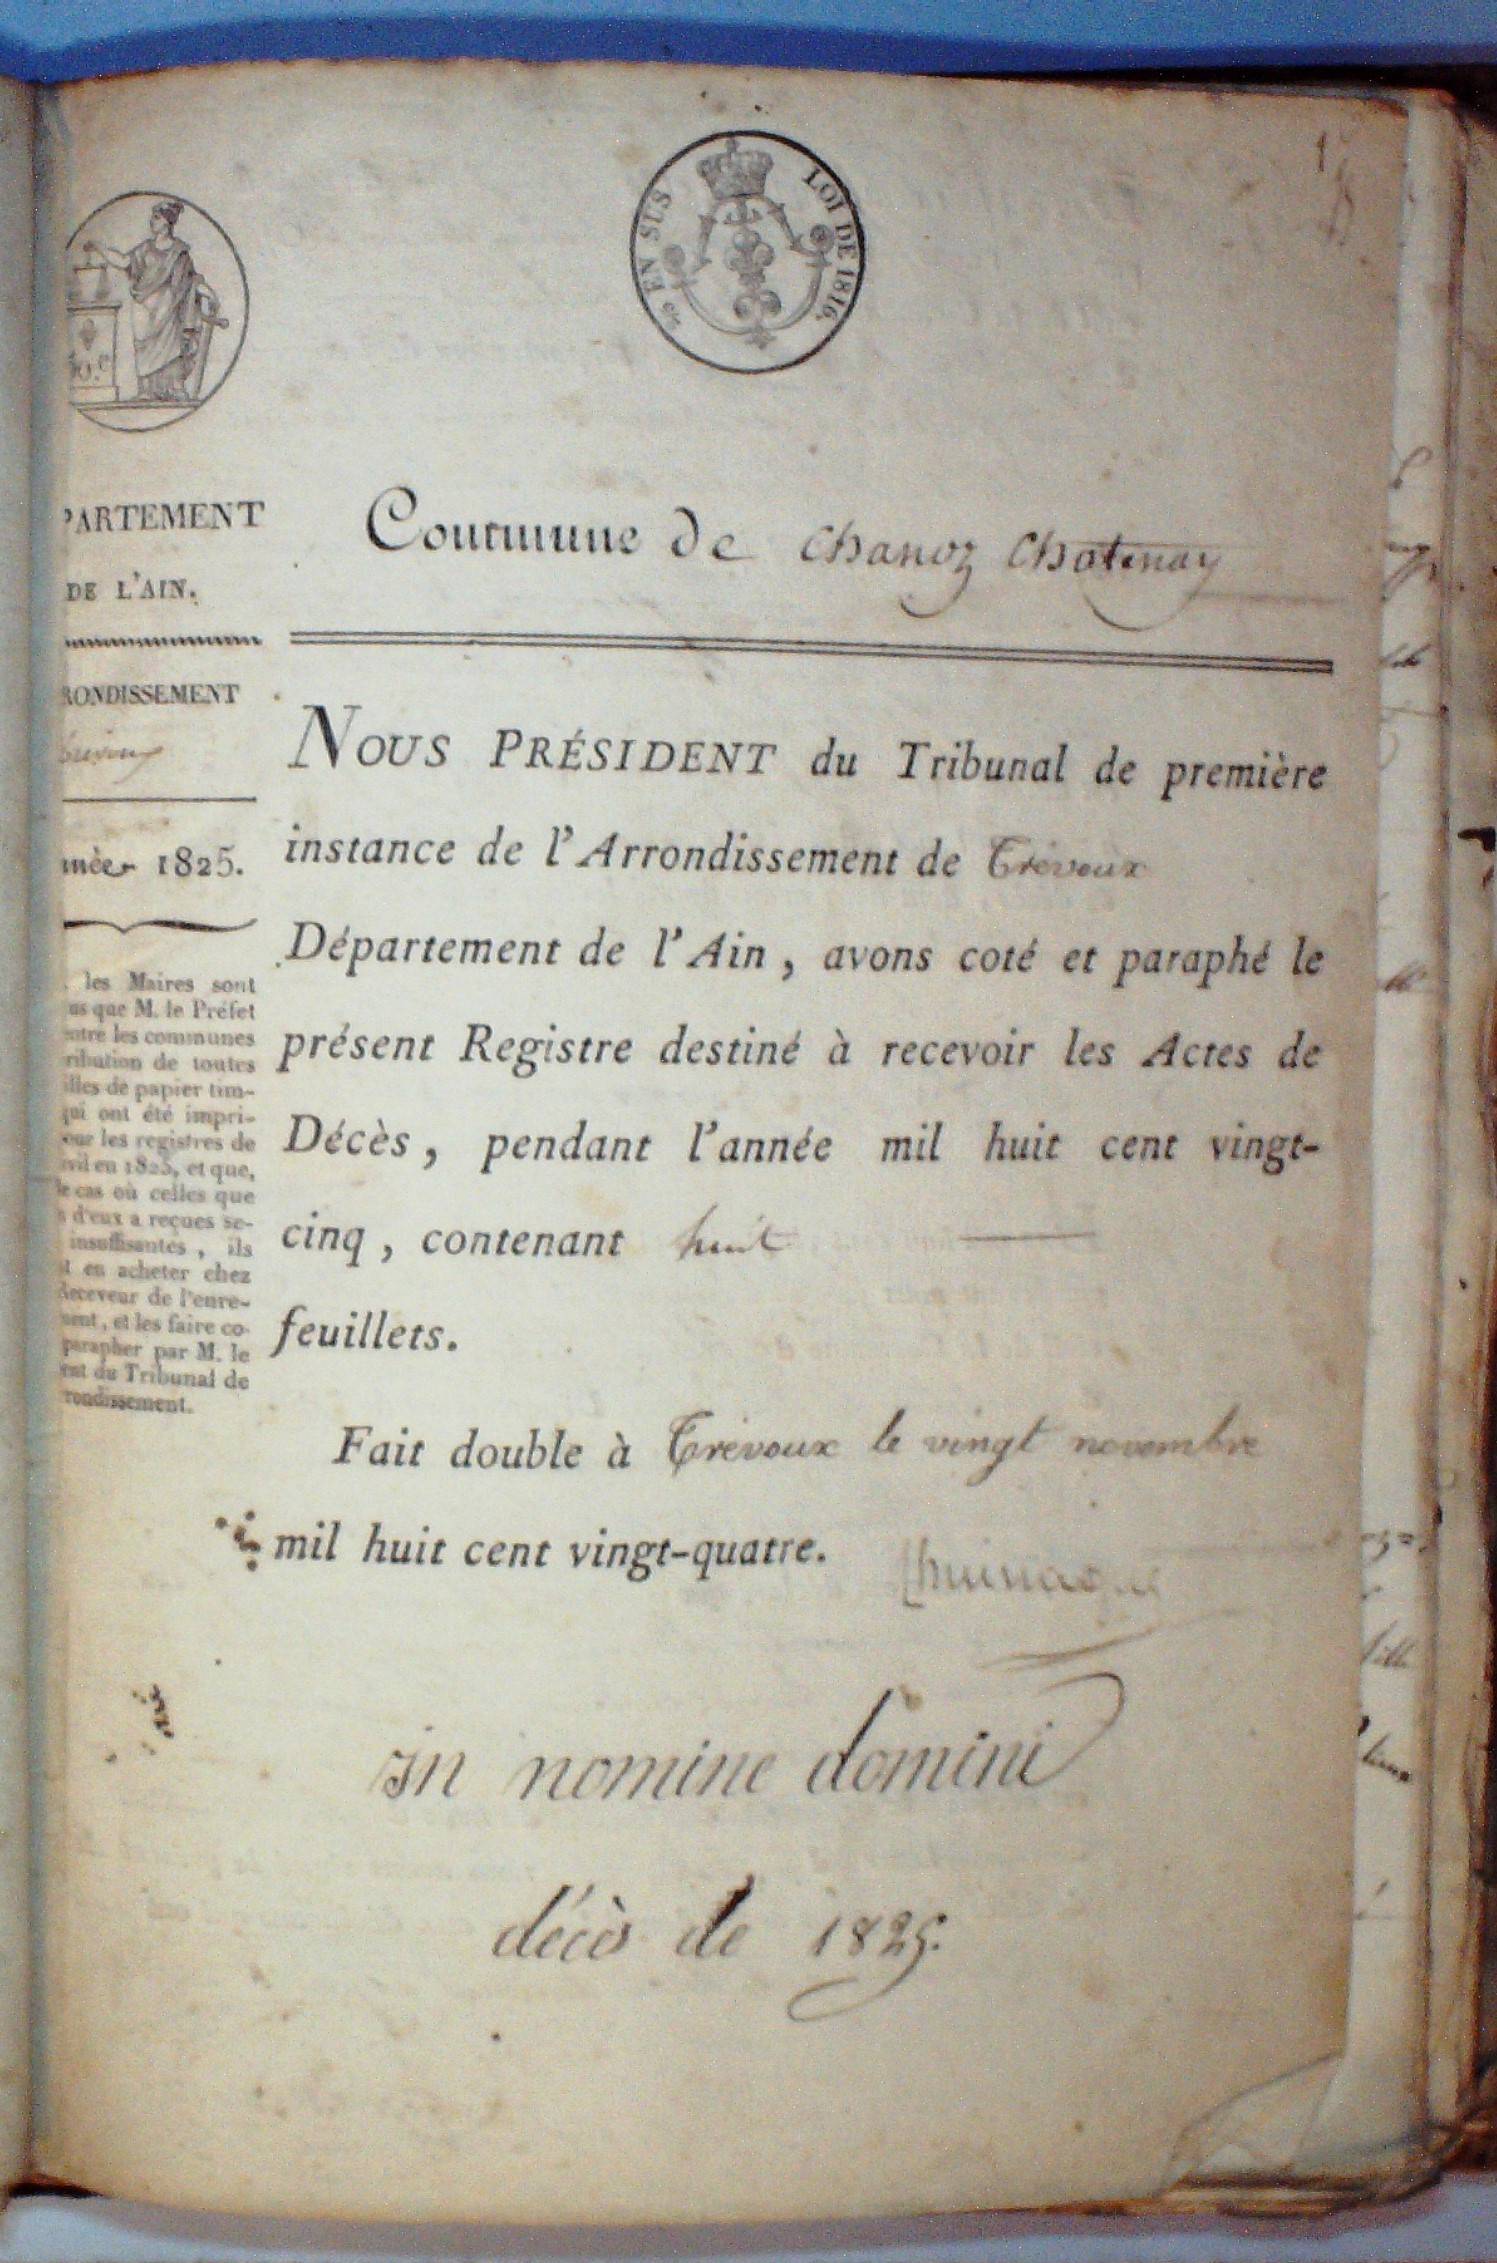 1
EN SUS
LOI DE 1816.
PARTEMENT
DE L'AIN.
RONDISSEMENT
1825.
les Maires sont
que M. le Préfet
les communes
de toutes
de papier tim-
qui ont été impri-
les registres de
en 1825, et que,
le cas où celles que
d'eux a reçues se-
insuffisantes, ils
en acheter chez
Receveur de l'enre-
et les faire co-
parapher par M. le
du Tribunal de
rondissement.
Commune de Chanoz Chatenay
NOUS PRÉSIDENT du Tribunal de première
instance de l'Arrondissement de Trévoux
Département de l'Ain, avons coté et paraphé le
présent Registre destiné à recevoir les Actes de
Décès, pendant l'année mil huit cent vingt-
cinq, contenant huit
feuillets.
Fait double à Trévoux le vingt novembre
mil huit cent vingt-quatre.
in nomine domini
décès de 1825.